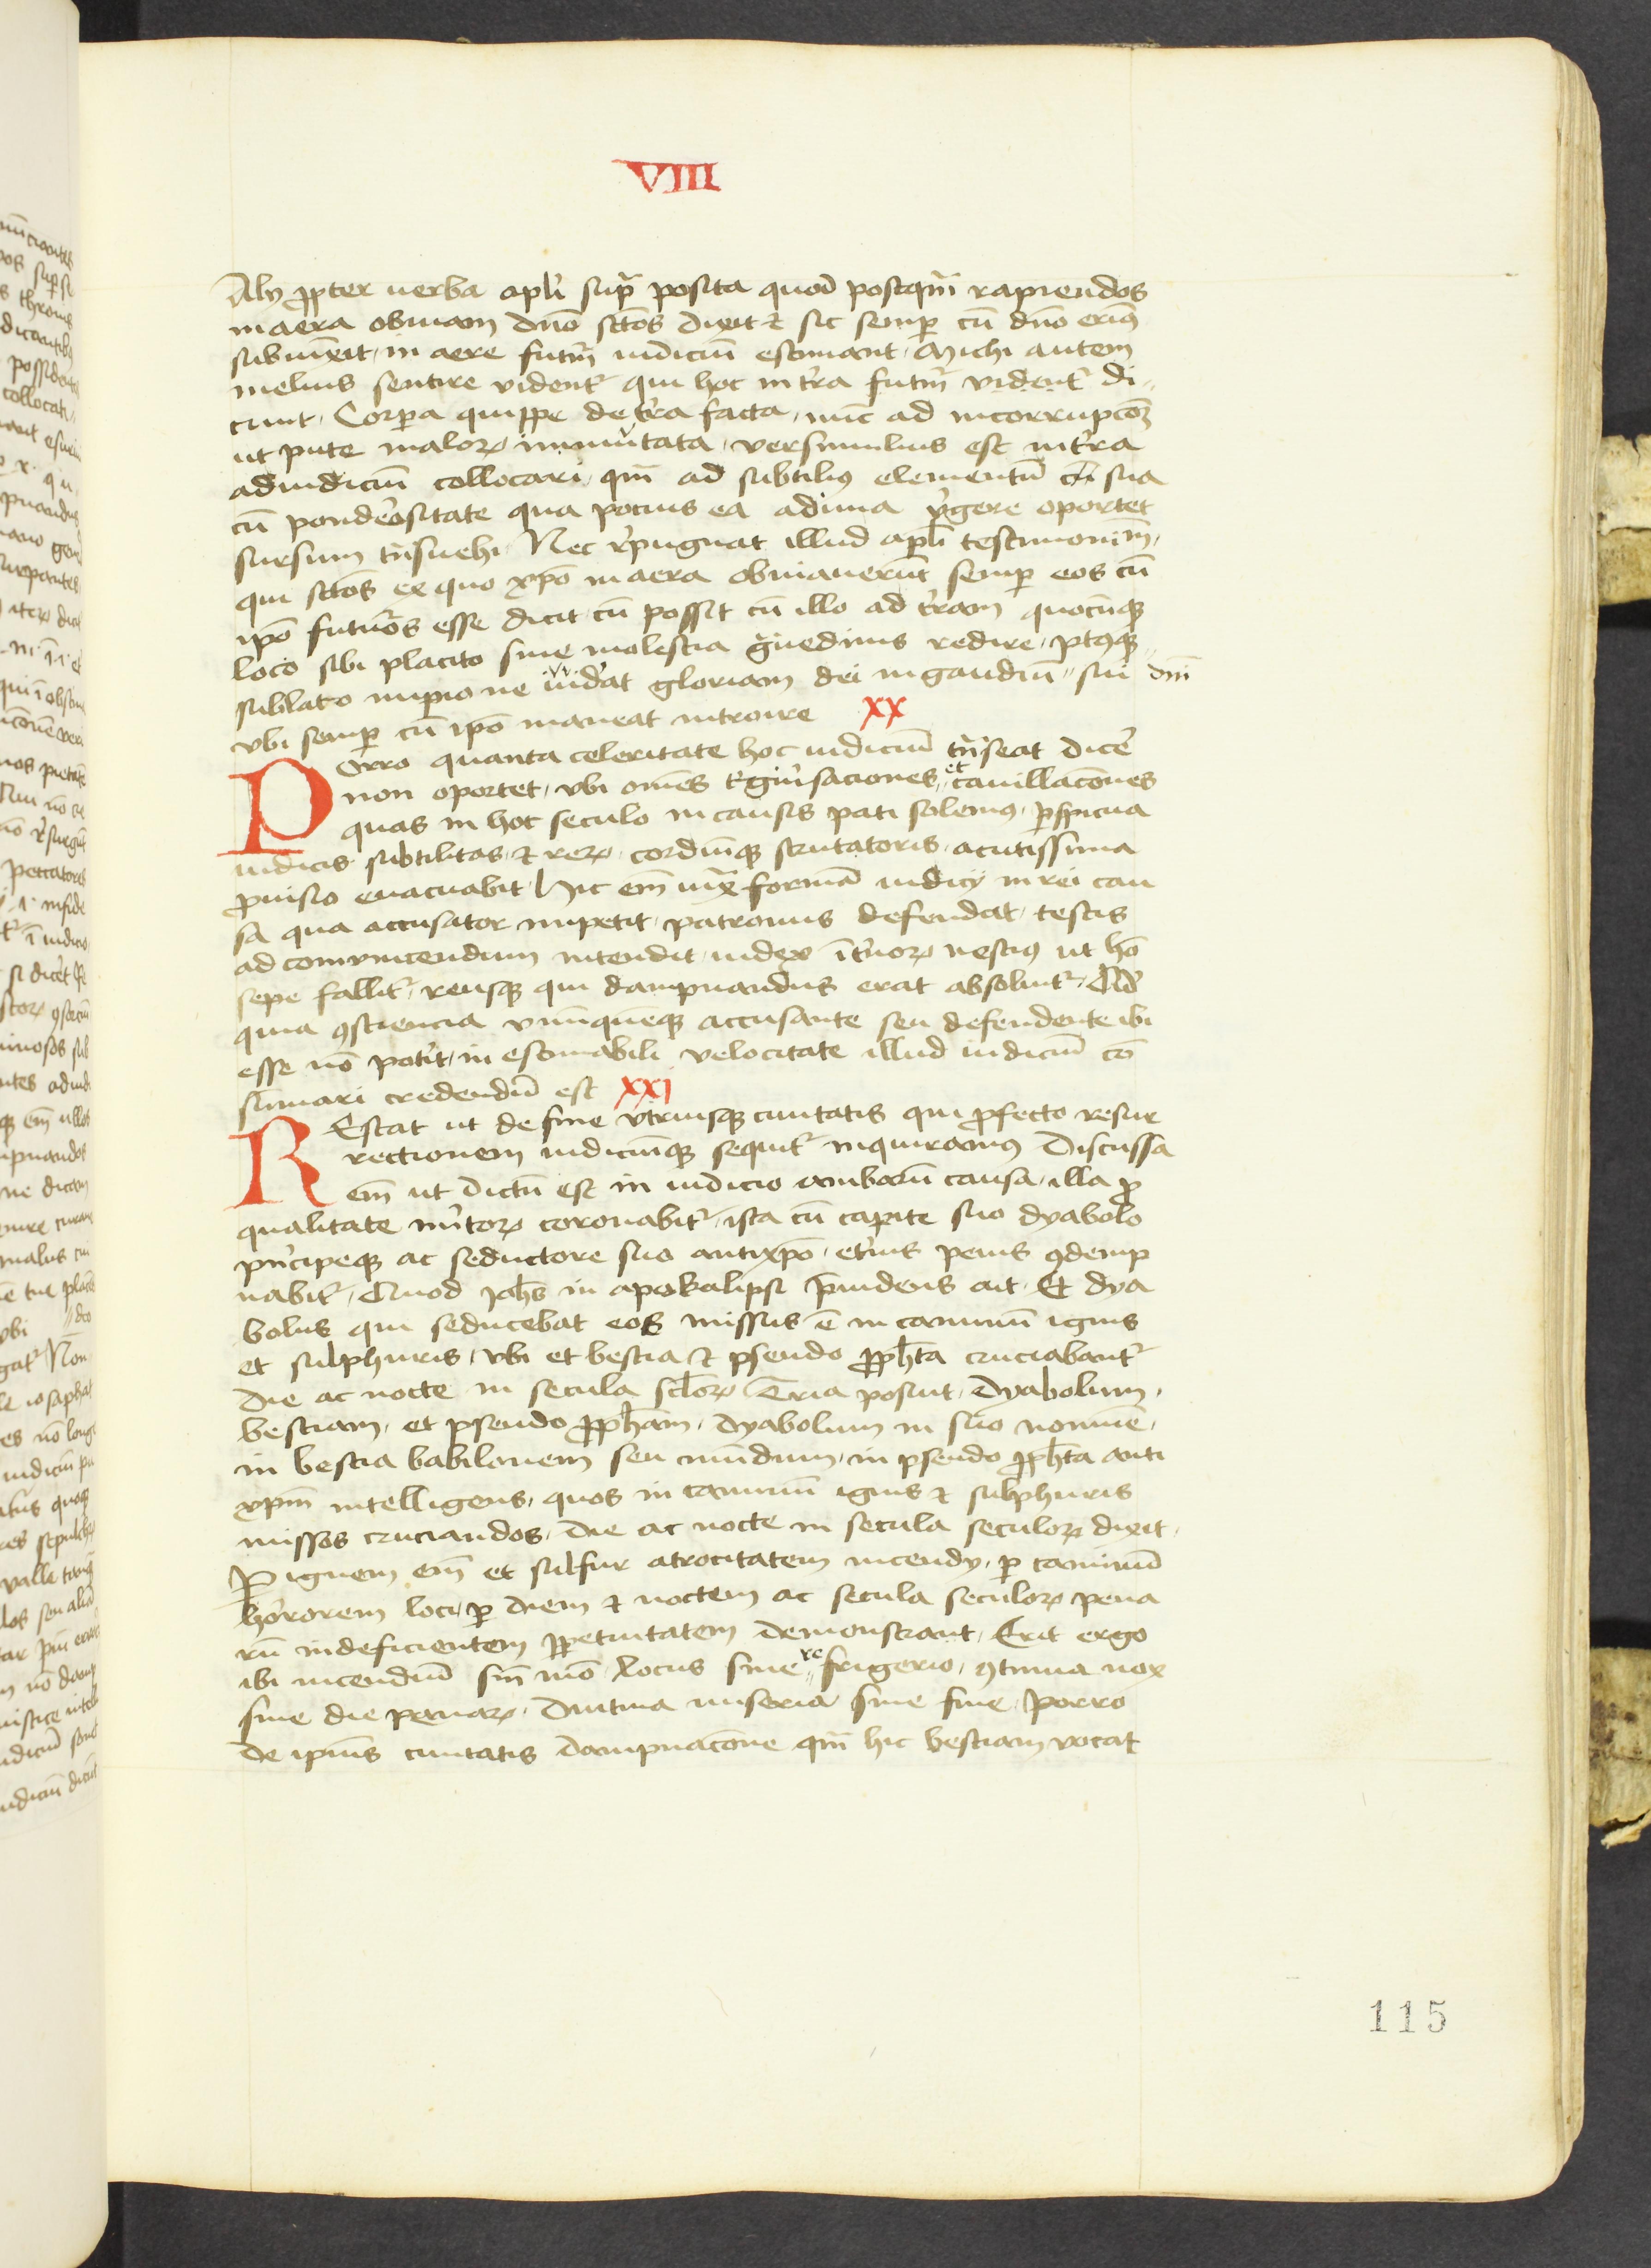 VIII
Alij ꝓpter uerba apl̄i sup̄ posita quōi postqm̄ rapiendos
in aera obuiam dn̄o sc̄tos dixit ⁊ sic semꝑ cū dn̄o erimꝰ
subiūxit, in aere futm̄ iudiciū estimant. Michi autem
melius sentire vident᷑ qui hoc in t̄ra futm̄ vident᷑ di
cunt. Corꝑa quippe de t̄ra facta, nūc ad incorrupc̄oꝫ
ut pute maloꝝ inmutata, versimilius est in t̄ra
ad iudiciū collocari, qm̄ ad subtiliꝰ elementū cū sua
cū pond̄ositate qua pocius ea ad ima v̄gere oportet
sursum tn̄suehi. Nec r̄pugnat illud apl̄i testimoniū,
qui sc̄tos ex quo xp̄o in aera obuiauerūt semꝑ eos cū
ip̄o futuros esse dicit, cū possit cū illo ad t̄ram quocūqꝫ
loco sibi placito sine molestia g̃uedinis redire, p̄tqꝫ
sublato impio ne uid̄at gloriam dei in gaudiū sui dn̄i
vbi semꝑ cū ip̄o maneat introire XX
Porro quanta celeritate hoc iudiciū tn̄seat dicē
non oportet, vbi om̄es t̄giu̅saciones et cauillac̄ones
quas in hoc seculo in causis pati solemꝰ, ꝑspicua
iudicis subtilitas, ⁊ reꝝ, cordiūqꝫ scrutatoris, acutissima
ꝓuisio euacuabit. Hic em̄ iux̄ formā iudicij in rei cau
sa qua accusator impetit, patronus defendat, testis
ad conuincendum intendit, iudex īt̄noꝝ nesciꝰ ut hō
sepe fallit᷑, reusqꝫ qui dampnandus erat absoluit᷑. Qd̄
quia ꝯsciencia vnūquēqꝫ accusante seu defendente ibi
esse nō pot̄it, in estimabili velocitate illud iudiciū cō
sūmari credendū est XXI
Restat ut de fine vtriusqꝫ ciuitatis qui ꝓfecto resur
rectionem iudiciūqꝫ sequit᷑ inquiramꝰ Discussa
em̄ ut dictū est in iudicio ambarū causa, illa ꝓ
qualitate m̄itoꝝ coronabit᷑, ista cū capite suo dyabolo
pn̄cipeqꝫ ac seductore suo antixp̄o, et̄nis penis ꝯdemp
nabit᷑. Quod joh̄s in apokalipsi p̄uidens ait. Et dya
bolus qui seducebat eos missus ē in caminū ignis
et sulphuris, vbi et bestia ⁊ pseudo ꝓph̄ta cruciabant᷑
die ac nocte in secula sc̄loꝝ. Tria posuit, dyabolum,
bestiam, et pseudo ꝓph̄am, dyabolum in suo nomine,
in bestia babilonem seu mundum, in pseudo ꝓph̄ta anti
xpm̄ intelligens, quos in caminū ignis ⁊ sulphuris
missos cruciandos, die ac nocte in secula seculoꝝ dixit,
Ꝑ ignem em̄ et sulfur atrocitatem incendij, ꝑ caminū
horrorem loci, ꝑ diem ⁊ noctem ac secula seculoꝝ pena
rū indeficientem ꝑpetuitatem demonstrant. Erit ergo
ibi incendiū sn̄ mō locus sine refrigerio, ꝯtinua nox
sine die penaꝝ, diutina miseria sine fine, Porro
de ip̄ius ciuitatis dampnac̄one qm̄ hic bestiam vocat
115